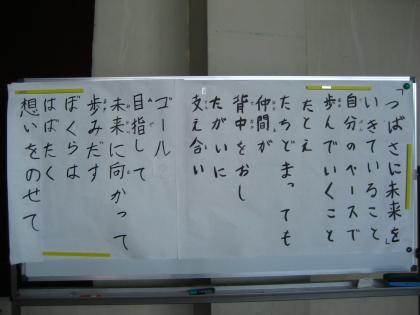 「つばさに未来を」
いきていること
自分のペースで
歩んでいくこと
たとえ
たちどまっても
仲間が
背中をおし
たがいに
支え合い
ゴール
目指して
未来に向かって
歩みだす
ぼくらは
はばたく
想いをのせて